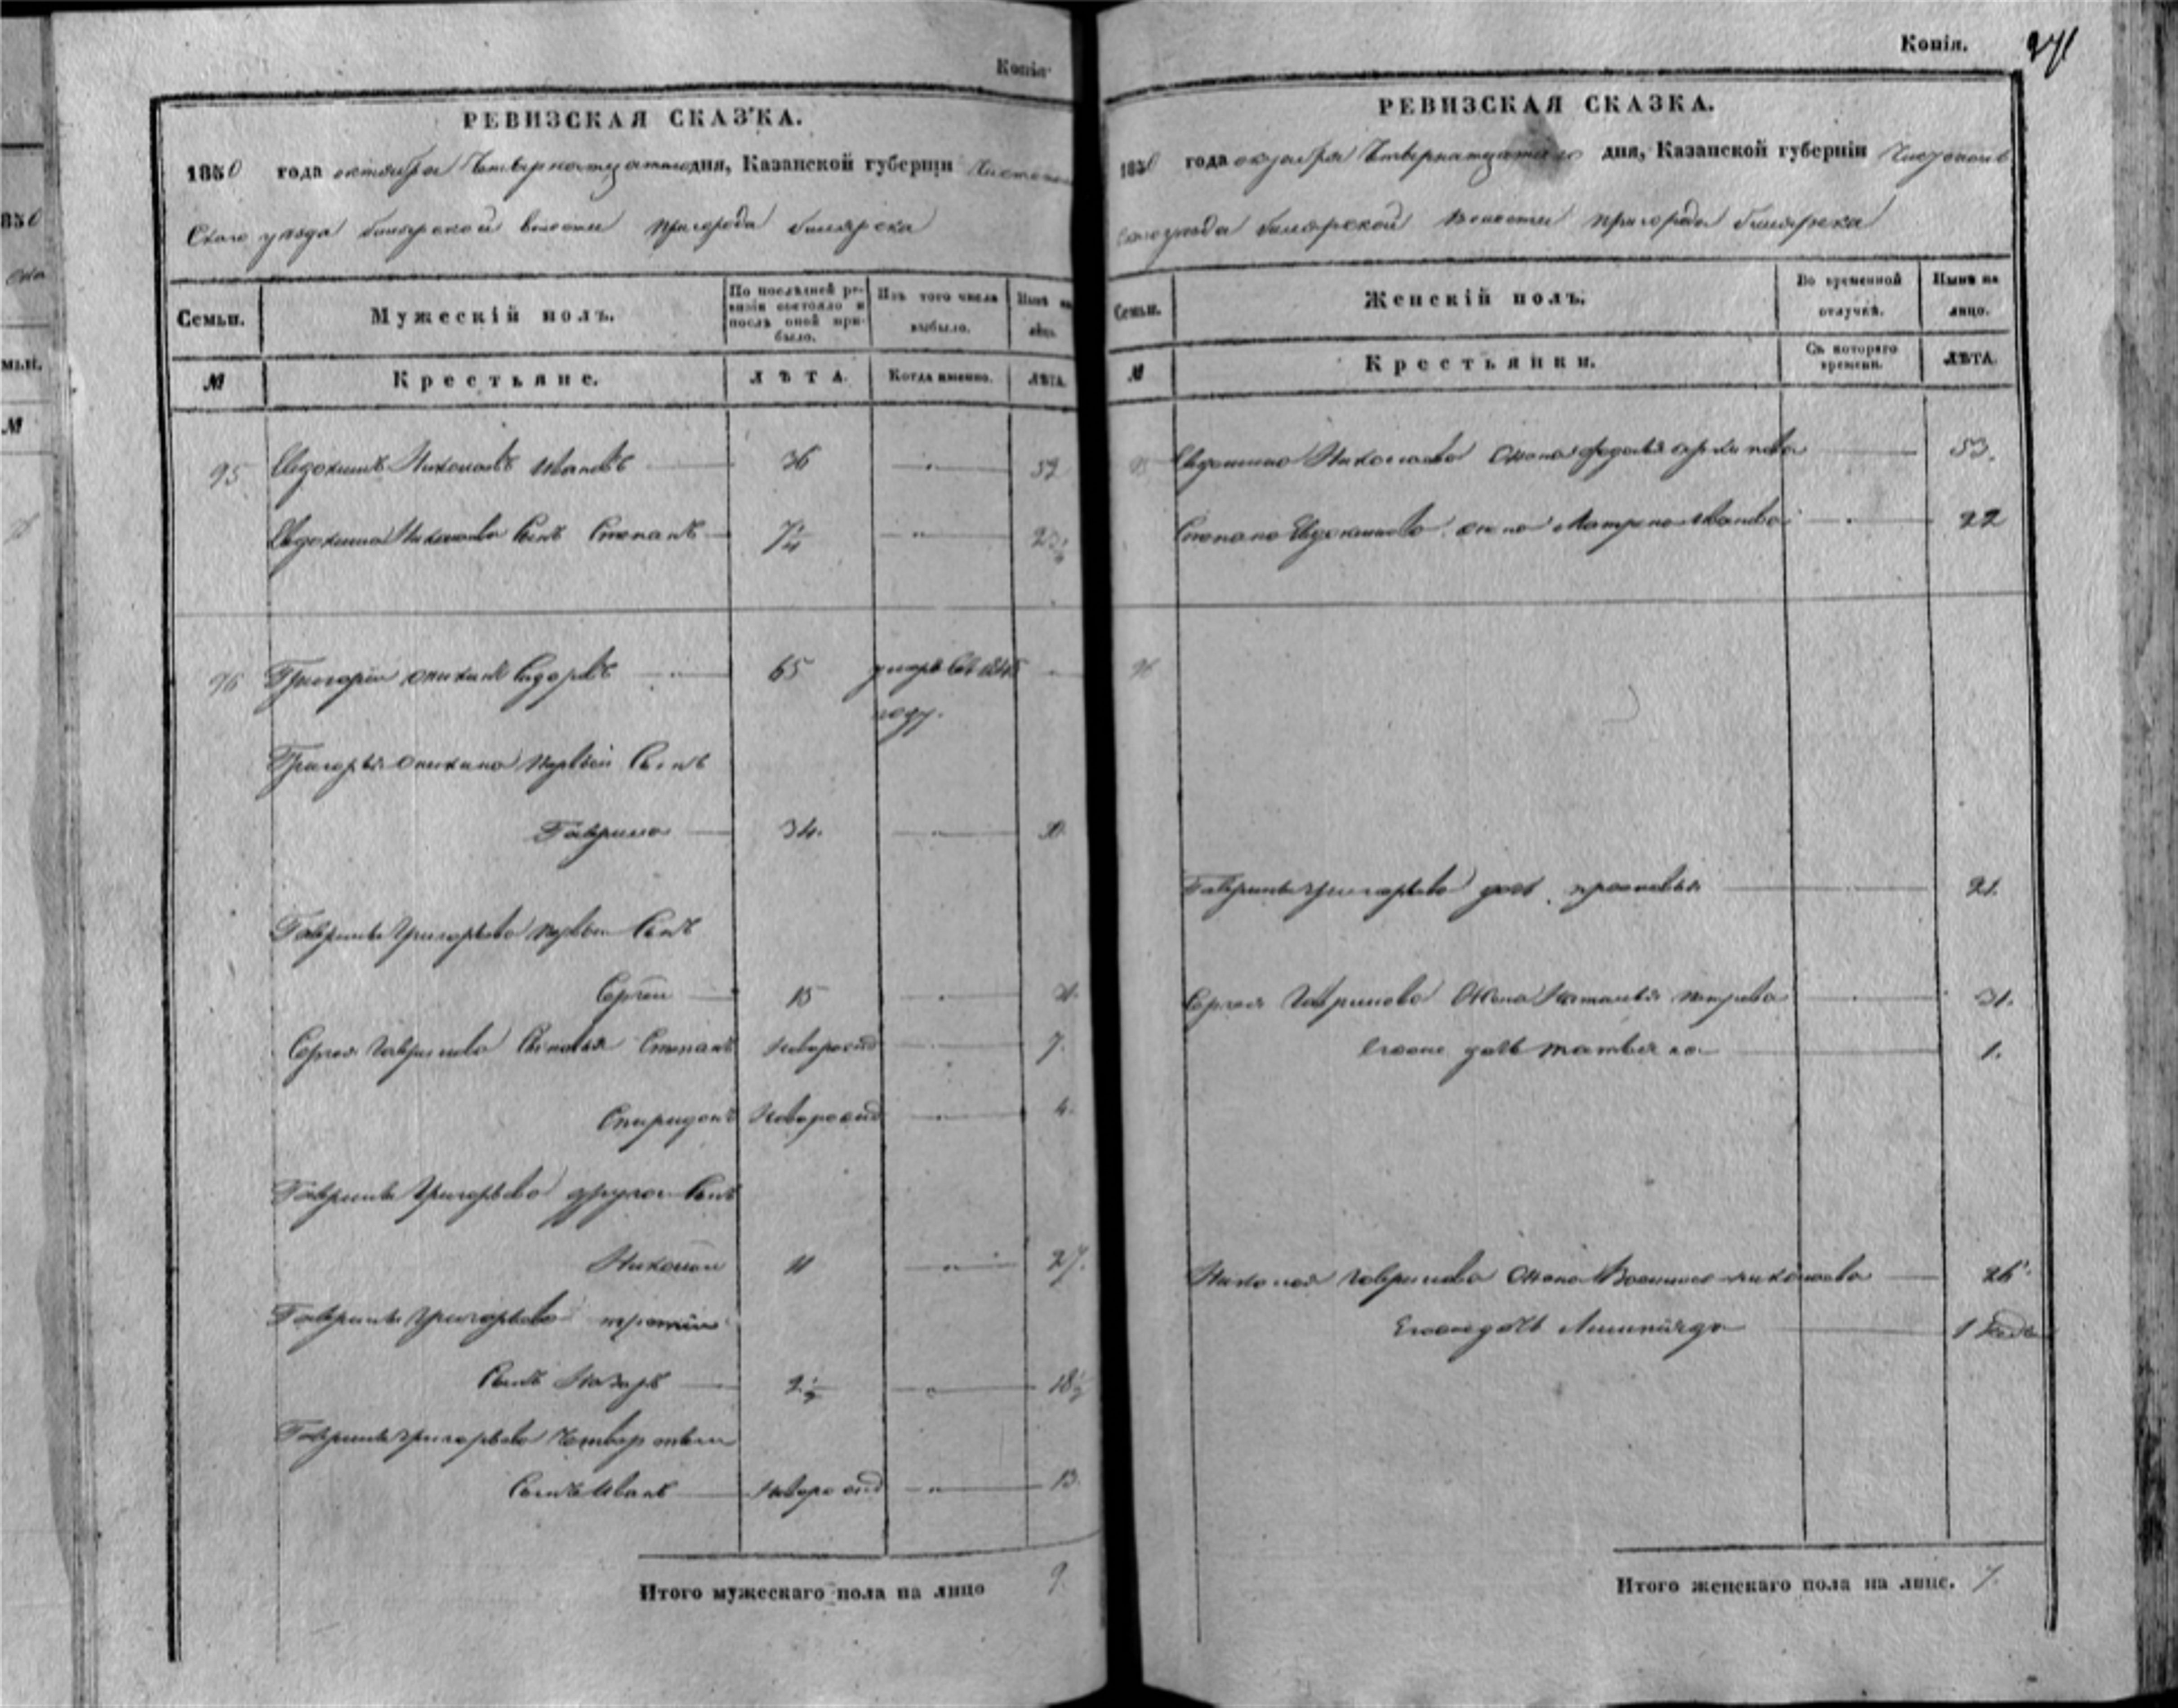 Копія.
РЕВИЗСКАЯ СКАЗКА.
1850 года октября Четвернатцатаго дня, Казанской губерніи Чистополь
скаго уезда билярской волости пригорода билярска
Семьи.
Мужескій полъ.
По послѣдней ревизіи состояло и послѣ оной прибыло.
Изъ того числа выбыло.
Нынѣ на лицо.
№
Крестьяне.
ЛѢТА.
Когда именно.
ЛѢТА.
95 Евдокимъ Николаевъ Ивановъ 36 52
Евдокима Николаева Сынъ Степанъ 7¼
96 Григорий Сидоровъ 65 умеръ въ
году.
Григорья первый Сынъ
Гаврила 34.
Гаврилы Григорьева первый Сынъ
Сергей 15
Сергея Гаврилова Сыновья Степанъ Новорожд 7.
Спиридонъ Новорожд 4.
Гаврилы Григорьева другой Сынъ
Николай 11 27.
Гаврилы Григорьева третий
Сынъ Назаръ 2½ 18½
Гаврилы Григорьева Четвертый
Сынъ Иванъ Новорожд 13.
Итого мужескаго пола на лицо 9.
Копія.
271
РЕВИЗСКАЯ СКАЗКА.
1850 года октября Четвернатцатаго дня, Казанской губерніи Чистополь
скаго уезда билярской волости пригорода билярска
Семьи.
Женскій полъ.
Во временной отлучкѣ.
Нынѣ на лицо.
№
Крестьянки.
Съ котораго времени.
ЛѢТА.
95 Евдокима Николаева Жена Федосья 53.
Степана Евдокимова жена Матрена Иванова 22
96
Гаврилы Григорьева дочь просковья 21.
Сергея Гаврилова Жена Наталья петрова 31.
Его дочь 1.
Николая Гаврилова Жена Василиса николаева 26.
Его дочь 1
Итого женскаго пола на лицо. 7.